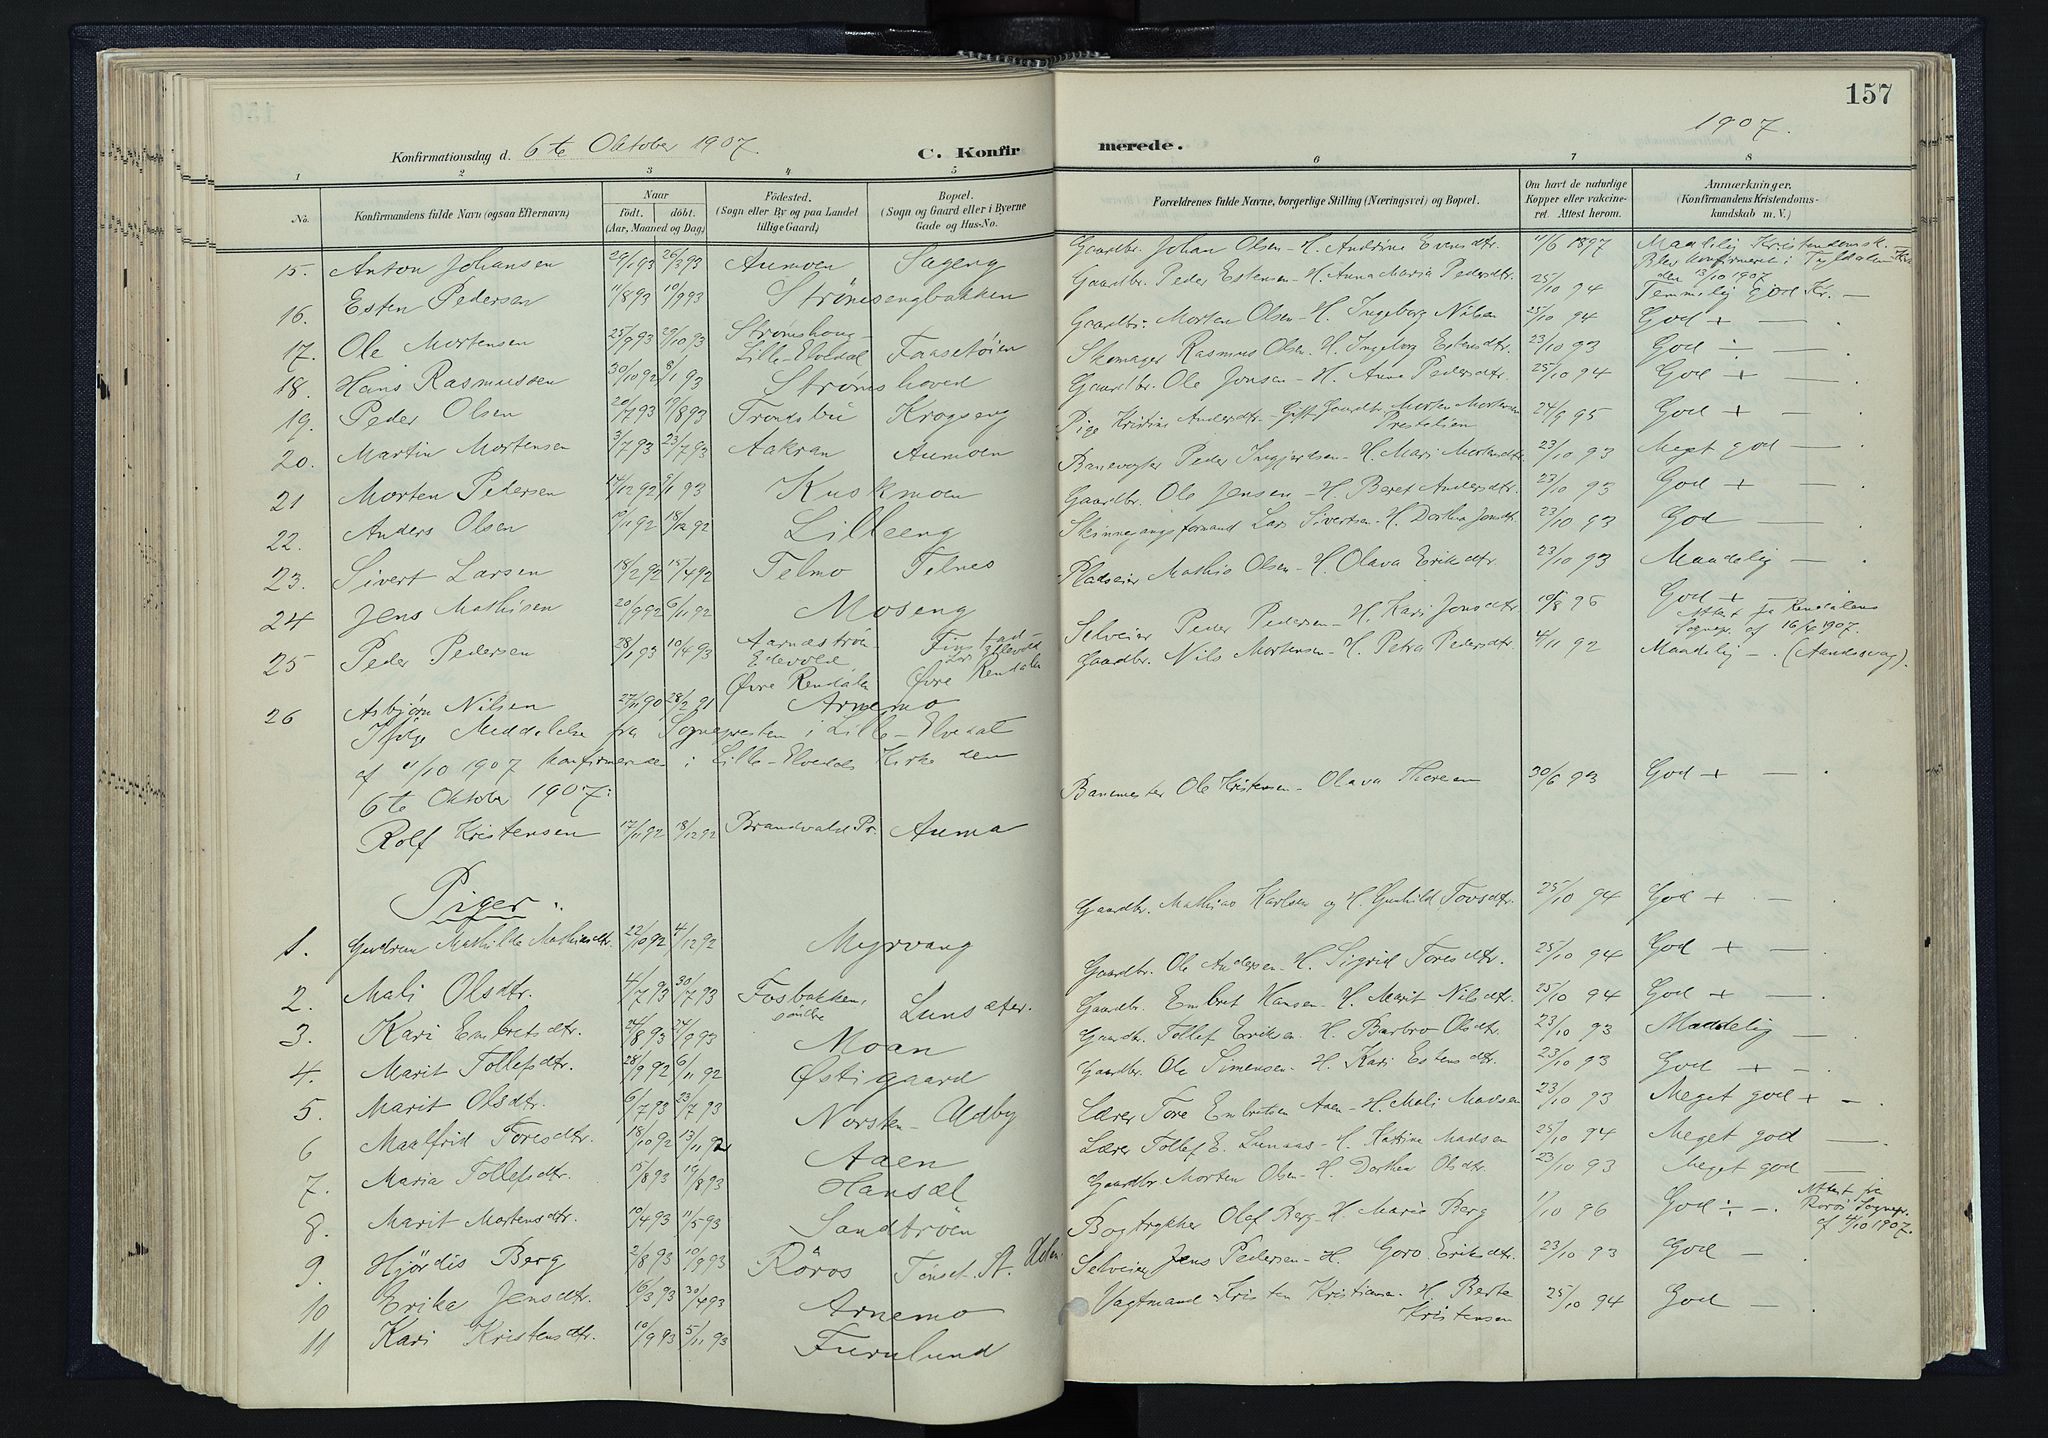 157
1907.
Konfirmationsdag d. 6te Oktober 1907.
C. Konfirmerede.
1 2 3 4 5 6 7 8
No.
Konfirmandens fulde Navn (ogsaa Efternavn)
Naar
födt. döbt.
(Aar, Maaned og Dag)
Födested.
(Sogn eller By og paa Landet
tillige Gaard)
Bopæl.
(Sogn og Gaard eller i Byerne
Gade og Hus-No.
Forældrenes fulde Navne, borgerlige Stilling (Næringsvei) og Bopæl.
Om havt de naturlige
Kopper eller vakcine-
ret. Attest herom.
Anmærkninger.
(Konfirmandens Kristendoms-
kundskab m. V.)
15. Anton Johansen 29/1 93 26/3 93 Aumoen Sageng Gaardbr. Johan Olsen - H. Andrine Evensdtr. 11/6 1897 Maadelig Kristendomsk.
Blev konfirmeret i Tyldalen
den 13/10 1907
16. Esten Pedersen 11/8 93 10/9 93 Strömsengbakken Gaardbr. Peder Estensen - H. Anna Maria Pedersdtr. 25/10 94 Temmelig god Kr. —
17. Ole Mortensen 25/9 93 29/10 93 Strömshoug Lille-Elvedal Faasetöien Gaardbr. Morten Olsen - H. Ingeborg Nilsen 25/10 94 God + — .
18. Hans Rasmussen 30/10 92 8/1 93 Strömshoved Skomager Rasmus Olsen - H. Ingeborg Estensdtr. 23/10 93 God ÷ — .
19. Peder Olsen 20/7 93 19/8 93 Trondsbu Krogseng Gaardbr. Ole Jonsen - H. Anne Pedersdtr. 25/10 94 God + —
20. Martin Mortensen 3/7 93 23/7 93 Aakran Aumoen Pige Kristine Andersdtr. - Gift Gaardbr. Morten Mortensen
Prestalien 24/9 95 God + — .
21 Morten Pedersen 14/12 92 9/1 93 Kuskmoen Banevogter Peder Ingjertsen - H. Mari Mortensdtr. 23/10 93 Meget god — .
22. Anders Olsen 19/11 92 18/12 92 Lilleeng Gaardbr. Ole Jensen - H. Beret Andersdtr. 23/10 93 God + — .
23. Sivert Larsen 18/2 92 15/4 92 Telmo Telnes Skinnegangsformand Lars Sivertsen - H. Dorthea Jonsdtr. 23/10 93 God — .
24 Jens Mathisen 20/9 92 6/11 92 Moseng Pladseier Mathis Olsen - H. Olava Eriksdtr. 23/10 93 Maadelig — .
25 Peder Pedersen 28/1 93 10/4 93 Aarnaströn
Edevold
Øvre Rendalen
Øvre Rendalen Selveier Peder Pedersen - H. Kari Jonsdtr. 10/8 96 God +
Attest fra Rendalens
Sognepr. af 16/4 1907.
26 Asbjörn Nilsen 27/11 90 28/2 91 Arnemo Gaardbr. Nils Mortensen - H. Petra Pedersdtr. 4/11 92 Maadelig — . (Aandssvag).
Ifölge Meddelelse fra Sognepresten i Lille-Elvedal
af 11/10 1907 konfirmerede i Lille-Elvedals Kirke den
6te Oktober 1907:
Rolf Kristensen 17/11 92 18/12 92 Brandvold Pr. Auma Banemester Ole Kristensen - Olava Thoresen 30/6 93 God + — .
Piger.
1. Gudrun Mathilde Mathiasdtr. 22/10 92 4/12 92 Myrvang Gaardbr. Mathias Karlsen og H. Gunhild Torsdtr. 25/10 94 God + . — .
2. Mali Olsdtr. 4/7 93 30/7 93 Fosbakken,
söndre Lunsæter. Gaardbr. Ole Andersen - H. Sigrid Toresdtr. 25/10 94 God + — .
3. Kari Embretsdtr. 24/8 93 24/9 93 Moan Gaardbr. Embret Hansen - H. Marit Nilsdtr. 25/10 94 God + — .
4. Marit Tollefsdtr. 28/9 92 6/11 92 Östigaard Gaardbr. Tollef Eriksen - H. Barbro Olsdtr. 23/10 93 Maadelig — .
5. Marit Olsdtr. 6/7 93 23/7 93 Norsten - Udby Gaardbr. Ole Simensen - H. Kari Estensdtr. 23/10 93 God + — .
6 Maalfrid Toresdtr. 18/10 92 13/11 92 Aaen Lærer Tore Embretsen Aaen - H. Mali Madsen 23/10 93 Meget god + — .
7. Maria Tollefsdtr. 15/8 93 19/8 93 Hansæl Lærer Tollef E. Lunaas - H. Katrine Madsen 25/10 94 Meget god — .
8. Marit Mortensdtr. 10/4 93 11/5 93 Sandtröen Gaardbr. Morten Olsen - H. Dorthea Olsdtr. 23/10 93 Meget god —
9. Hjördis Berg 2/8 93 10/9 93 Röros Tönset St. Bogtrykker Olaf Berg - H. Maria Berg 1/10 96 God ÷ — . Attest fra
Röros Sognepr.
af 4/10 1907.
10 Erika Jensdtr. 16/3 93 30/4 93 Arnemo Selveier Jens Pedersen - H. Goro Eriksdtr. 23/10 93 God — .
11 Kari Kristensdtr. 10/9 93 5/11 93 Furulund Vagtmand Kristen Kristiansen - H. Berte
Kristensen 25/10 94 God — .